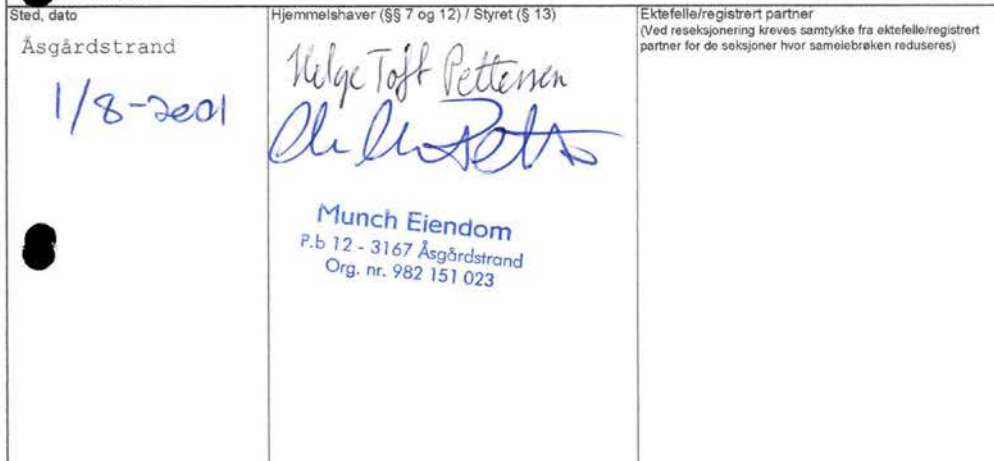 Sted, dato
Åsgårdstrand
1/8-2001
Hjemmelshaver (§§ 7 og 12) / Styret (§ 13)
Helge Toft Pettersen
Munch Eiendom
P.b 12 - 3167 Åsgårdstrand
Org. nr. 982 151 023
Ektefelle/registrert partner
(Ved reseksjonering kreves samtykke fra ektefelle/registrert
partner for de seksjoner hvor sameiebrøken reduseres)